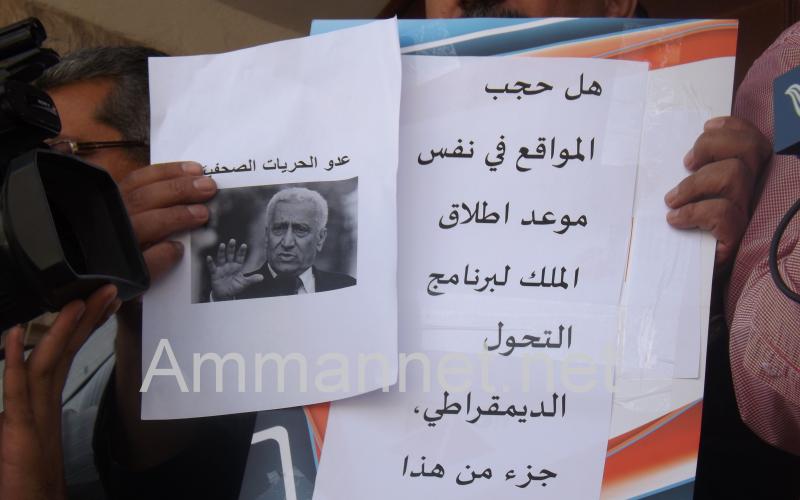 عدو الحريات الصحفية
هل حجب
المواقع في نفس
موعد اطلاق
الملك لبرنامج
التحول
الديمقراطي،
جزء من هذا
Ammannet.net